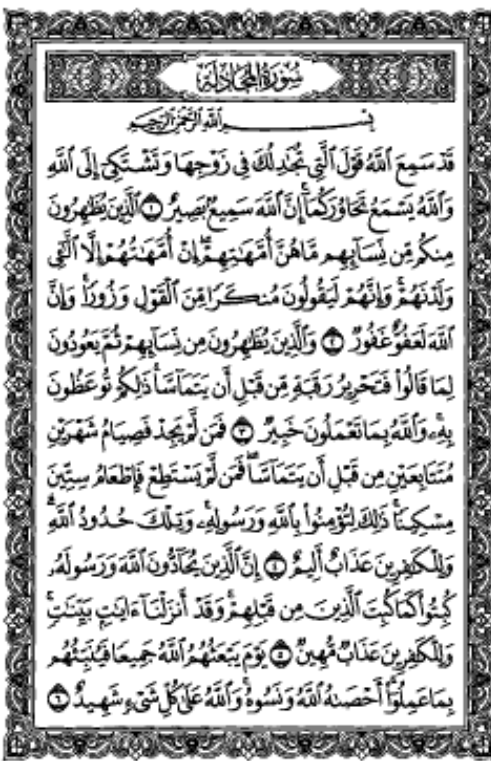 سُورَةُ المُجَادلَةِ
بِسْمِ ٱللَّهِ ٱلرَّحْمَٰنِ ٱلرَّحِيمِ
قَدْ سَمِعَ ٱللَّهُ قَوْلَ ٱلَّتِي تُجَٰدِلُكَ فِي زَوْجِهَا وَتَشْتَكِيٓ إِلَى ٱللَّهِ
وَٱللَّهُ يَسْمَعُ تَحَاوُرَكُمَآ إِنَّ ٱللَّهَ سَمِيعٌۢ بَصِيرٌ ١ ٱلَّذِينَ يُظَٰهِرُونَ
مِنكُم مِّن نِّسَآئِهِم مَّا هُنَّ أُمَّهَٰتِهِمْۖ إِنْ أُمَّهَٰتُهُمْ إِلَّا ٱلَّٰٓـِٔي
وَلَدْنَهُمْۚ وَإِنَّهُمْ لَيَقُولُونَ مُنكَرًا مِّنَ ٱلْقَوْلِ وَزُورًاۚ وَإِنَّ
ٱللَّهَ لَعَفُوٌّ غَفُورٌ ٢ وَٱلَّذِينَ يُظَٰهِرُونَ مِن نِّسَآئِهِمْ ثُمَّ يَعُودُونَ
لِمَا قَالُواْ فَتَحْرِيرُ رَقَبَةٍ مِّن قَبْلِ أَن يَتَمَآسَّاۚ ذَٰلِكُمْ تُوعَظُونَ
بِهِۦۚ وَٱللَّهُ بِمَا تَعْمَلُونَ خَبِيرٌ ٣ فَمَن لَّمْ يَجِدْ فَصِيَامُ شَهْرَيْنِ
مُتَتَابِعَيْنِ مِن قَبْلِ أَن يَتَمَآسَّاۖ فَمَن لَّمْ يَسْتَطِعْ فَإِطْعَامُ سِتِّينَ
مِسْكِينًاۚ ذَٰلِكَ لِتُؤْمِنُواْ بِٱللَّهِ وَرَسُولِهِۦۚ وَتِلْكَ حُدُودُ ٱللَّهِۗ
وَلِلْكَٰفِرِينَ عَذَابٌ أَلِيمٌ ٤ إِنَّ ٱلَّذِينَ يُحَآدُّونَ ٱللَّهَ وَرَسُولَهُۥ
كُبِتُواْ كَمَا كُبِتَ ٱلَّذِينَ مِن قَبْلِهِمْۚ وَقَدْ أَنزَلْنَآ ءَايَٰتٍۭ بَيِّنَٰتٍۚ
وَلِلْكَٰفِرِينَ عَذَابٌ مُّهِينٌ ٥ يَوْمَ يَبْعَثُهُمُ ٱللَّهُ جَمِيعًا فَيُنَبِّئُهُم
بِمَا عَمِلُوٓاْۚ أَحْصَىٰهُ ٱللَّهُ وَنَسُوهُۚ وَٱللَّهُ عَلَىٰ كُلِّ شَيْءٍ شَهِيدٌ ٦